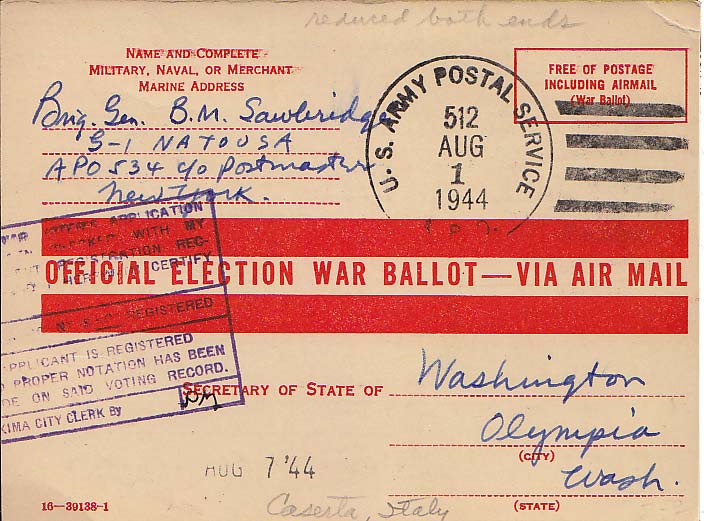 reduced both ends
NAME AND COMPLETE
MILITARY, NAVAL, OR MERCHANT
MARINE ADDRESS
Brig. Gen. B.M. Sawbridge
G-1 NATOUSA
APO 534 c/o Postmaster
New York.
U. S. ARMY POSTAL SERVICE
512
AUG
1
1944
FREE OF POSTAGE
INCLUDING AIRMAIL
(War Ballot)
APPLICATION
WITH MY
REGISTRATION REC-
CERTIFY
OFFICIAL ELECTION WAR BALLOT—VIA AIR MAIL
REGISTERED
PPLICANT IS REGISTERED
PROPER NOTATION HAS BEEN
DE ON SAID VOTING RECORD.
KIMA CITY CLERK By
SECRETARY OF STATE OF Washington
Olympia
(CITY)
Wash.
(STATE)
AUG 7 '44
16—39138-1
Caserta, Italy